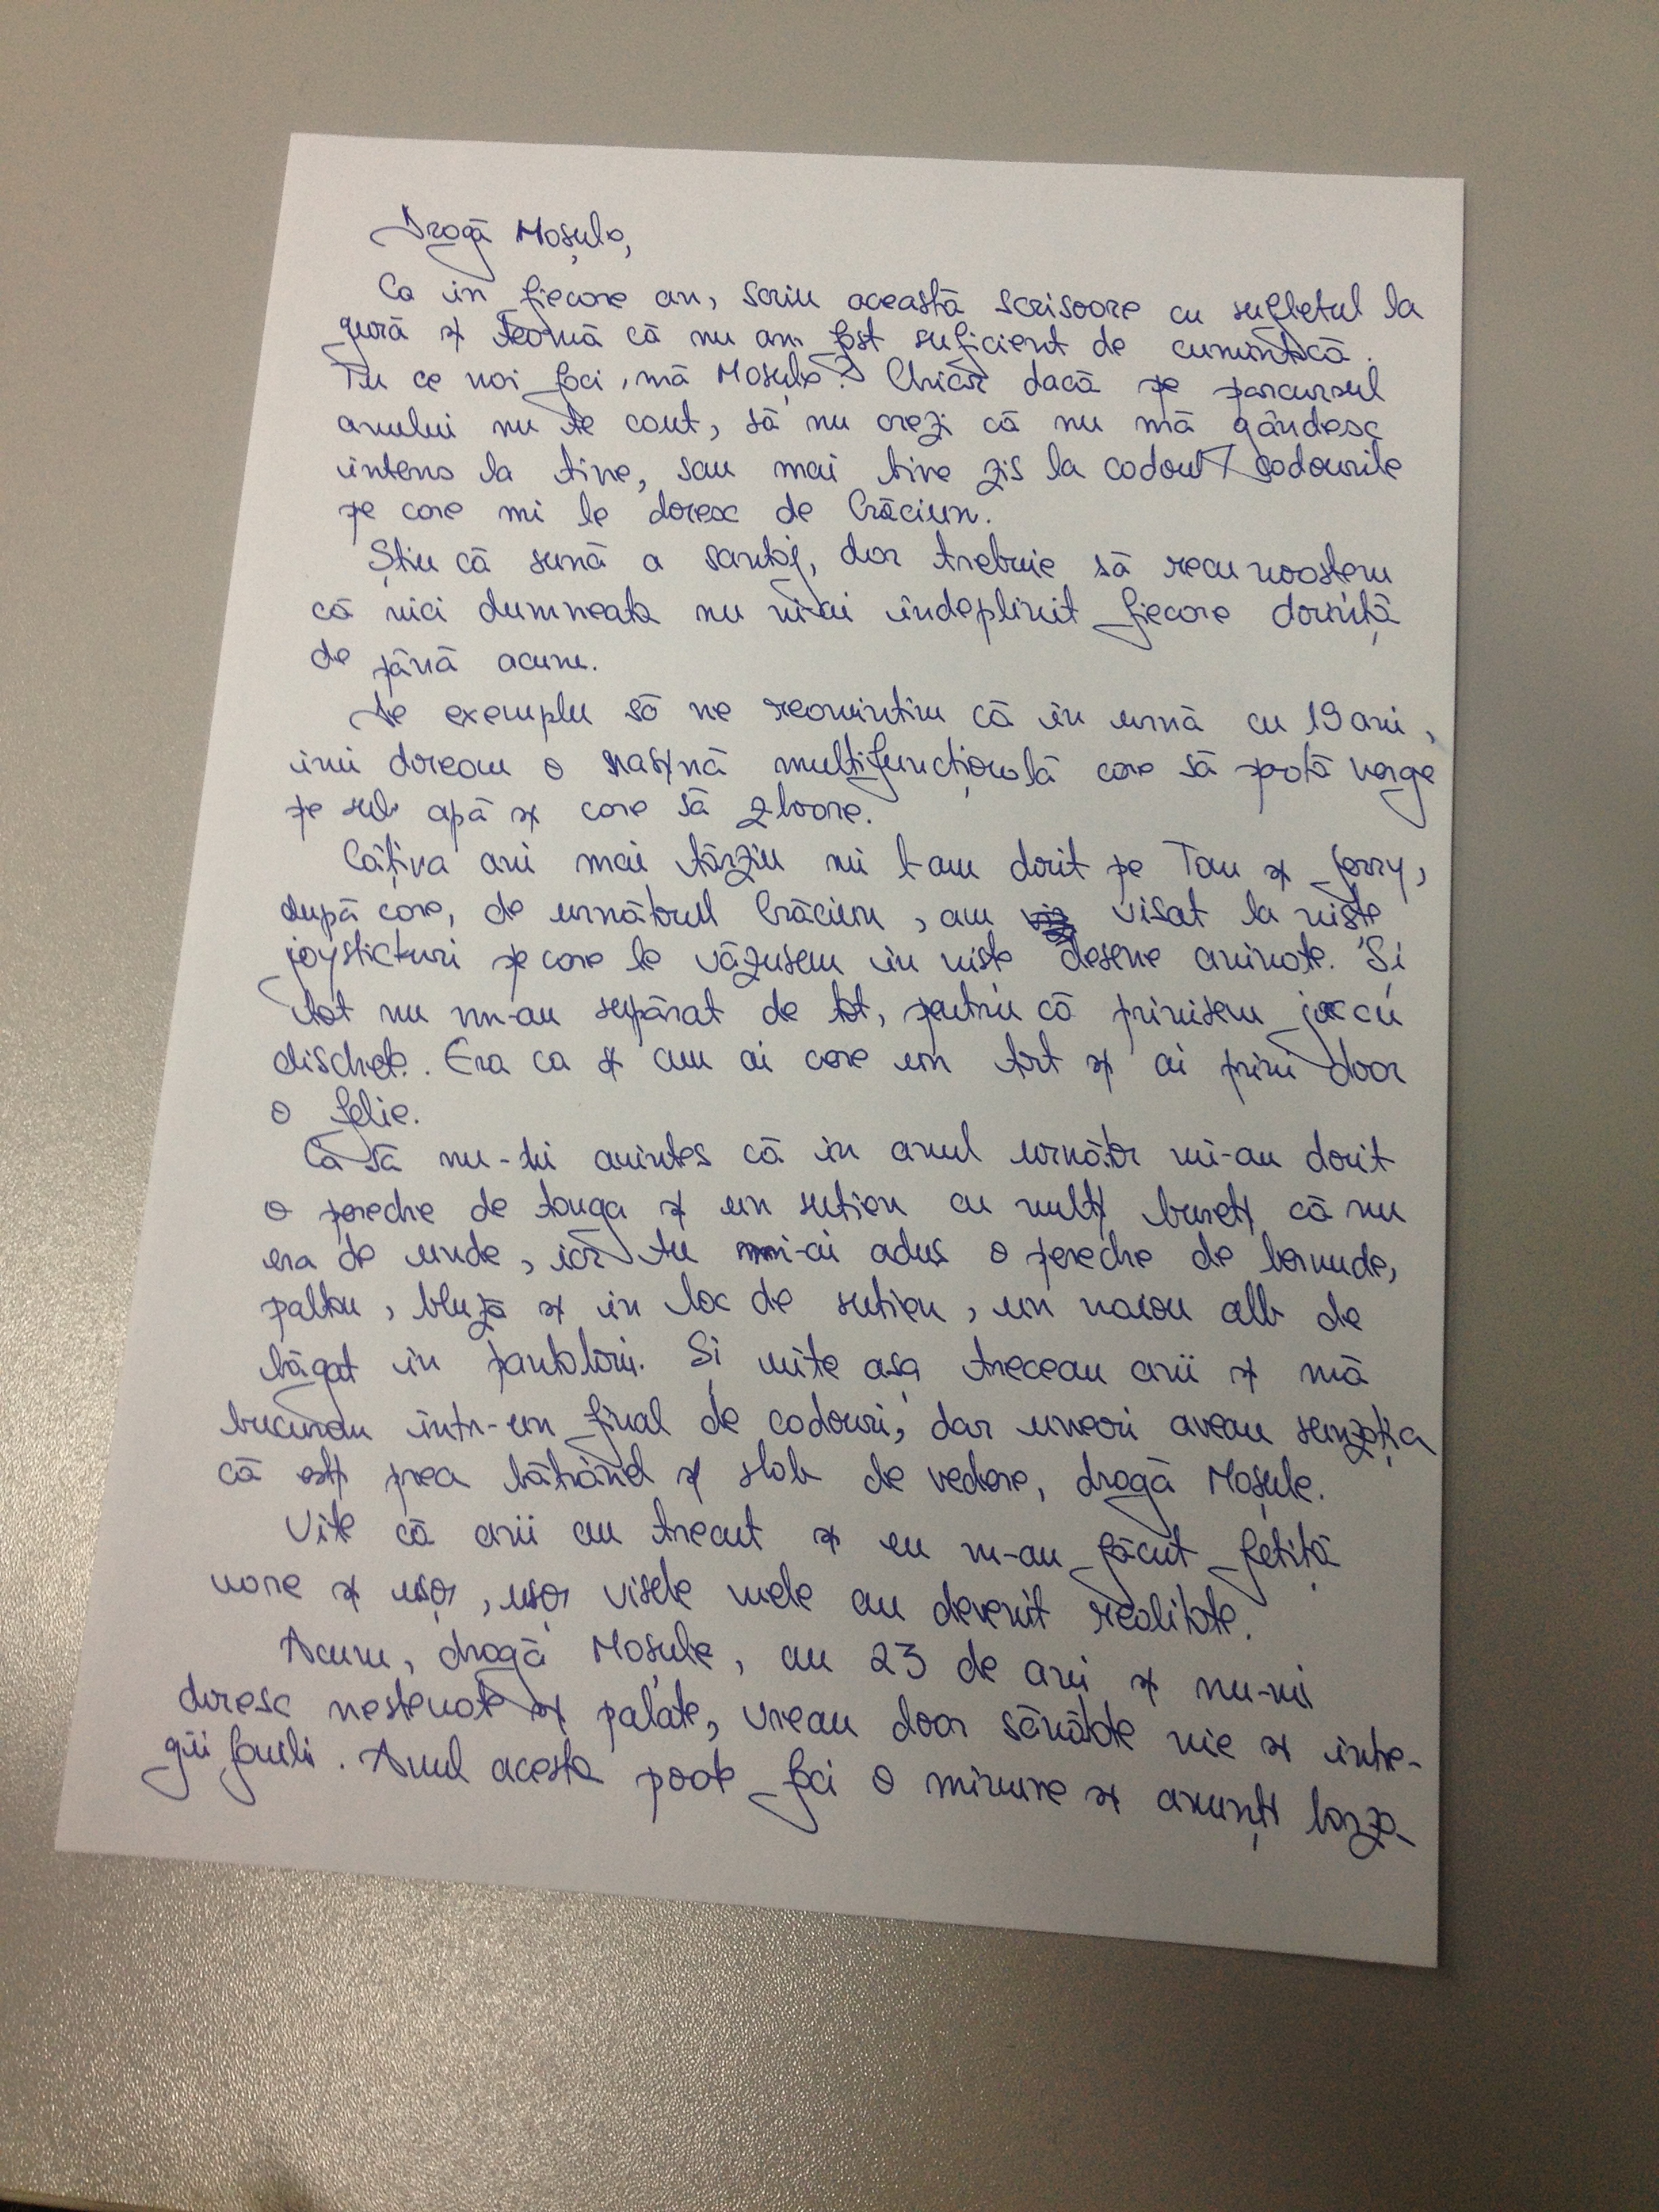 Dragă Moșule,
Ca în fiecare an, scriu această scrisoare cu sufletul la
gură și teamă că nu am fost suficient de cumințică.
Tu ce mai faci, mă Moșule? Chiar dacă pe parcursul
anului nu te caut, să nu crezi că nu mă gândesc
intens la tine, sau mai bine zis la cadoul/cadourile
pe care mi le doresc de Crăciun.
Știu că sună a șantaj, dar trebuie să recunoaștem
că nici dumneata nu mi-ai îndeplinit fiecare dorință
de până acum.
De exemplu să ne reamintim că în urmă cu 19 ani,
îmi doream o mașină multifuncțională care să poată merge
pe sub apă și care să zboare.
Câțiva ani mai târziu mi l-am dorit pe Tom și Jerry,
după care, de următorul Crăciun, am visat la niște
joystickuri pe care le văzusem în niște desene animate. Și
tot nu m-am supărat de tot, pentru că primisem joc cu
dischete. Era ca și cum ai cere un tort și ai primi doar
o felie.
Ca să nu-ți amintesc că în anul următor mi-am dorit
o pereche de tanga și un sutien cu mulți bureți că nu
era de unde, iar tu mi-ai adus o pereche de bermude,
palton, bluză și în loc de sutien, un maiou alb de
băgat în pantaloni. Și uite așa treceau anii și mă
bucuram într-un final de cadouri, dar uneori aveam senzația
că ești prea bătrânel și slab de vedere, dragă Moșule.
Uite că anii au trecut și eu m-am făcut fetiță
mare și ușor, ușor visele mele au devenit realitate.
Acum, dragă Moșule, am 23 de ani și nu-mi
doresc nestemate și palate, vreau doar sănătate mie și între-
gii familii. Anul acesta poate faci o minune și anunți barza